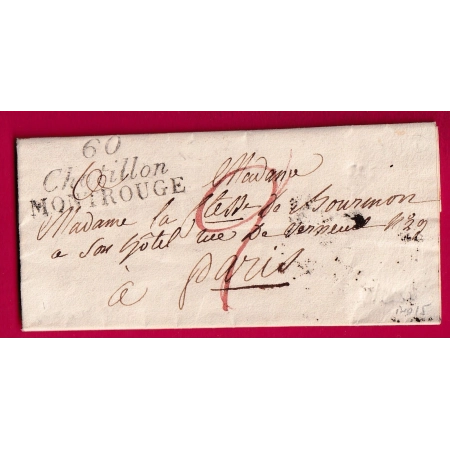 60
Chatillon
MONTROUGE
Madame
Madame la Ctesse de Gourmon
a son hôtel rue de Verneuil N 39
à Paris